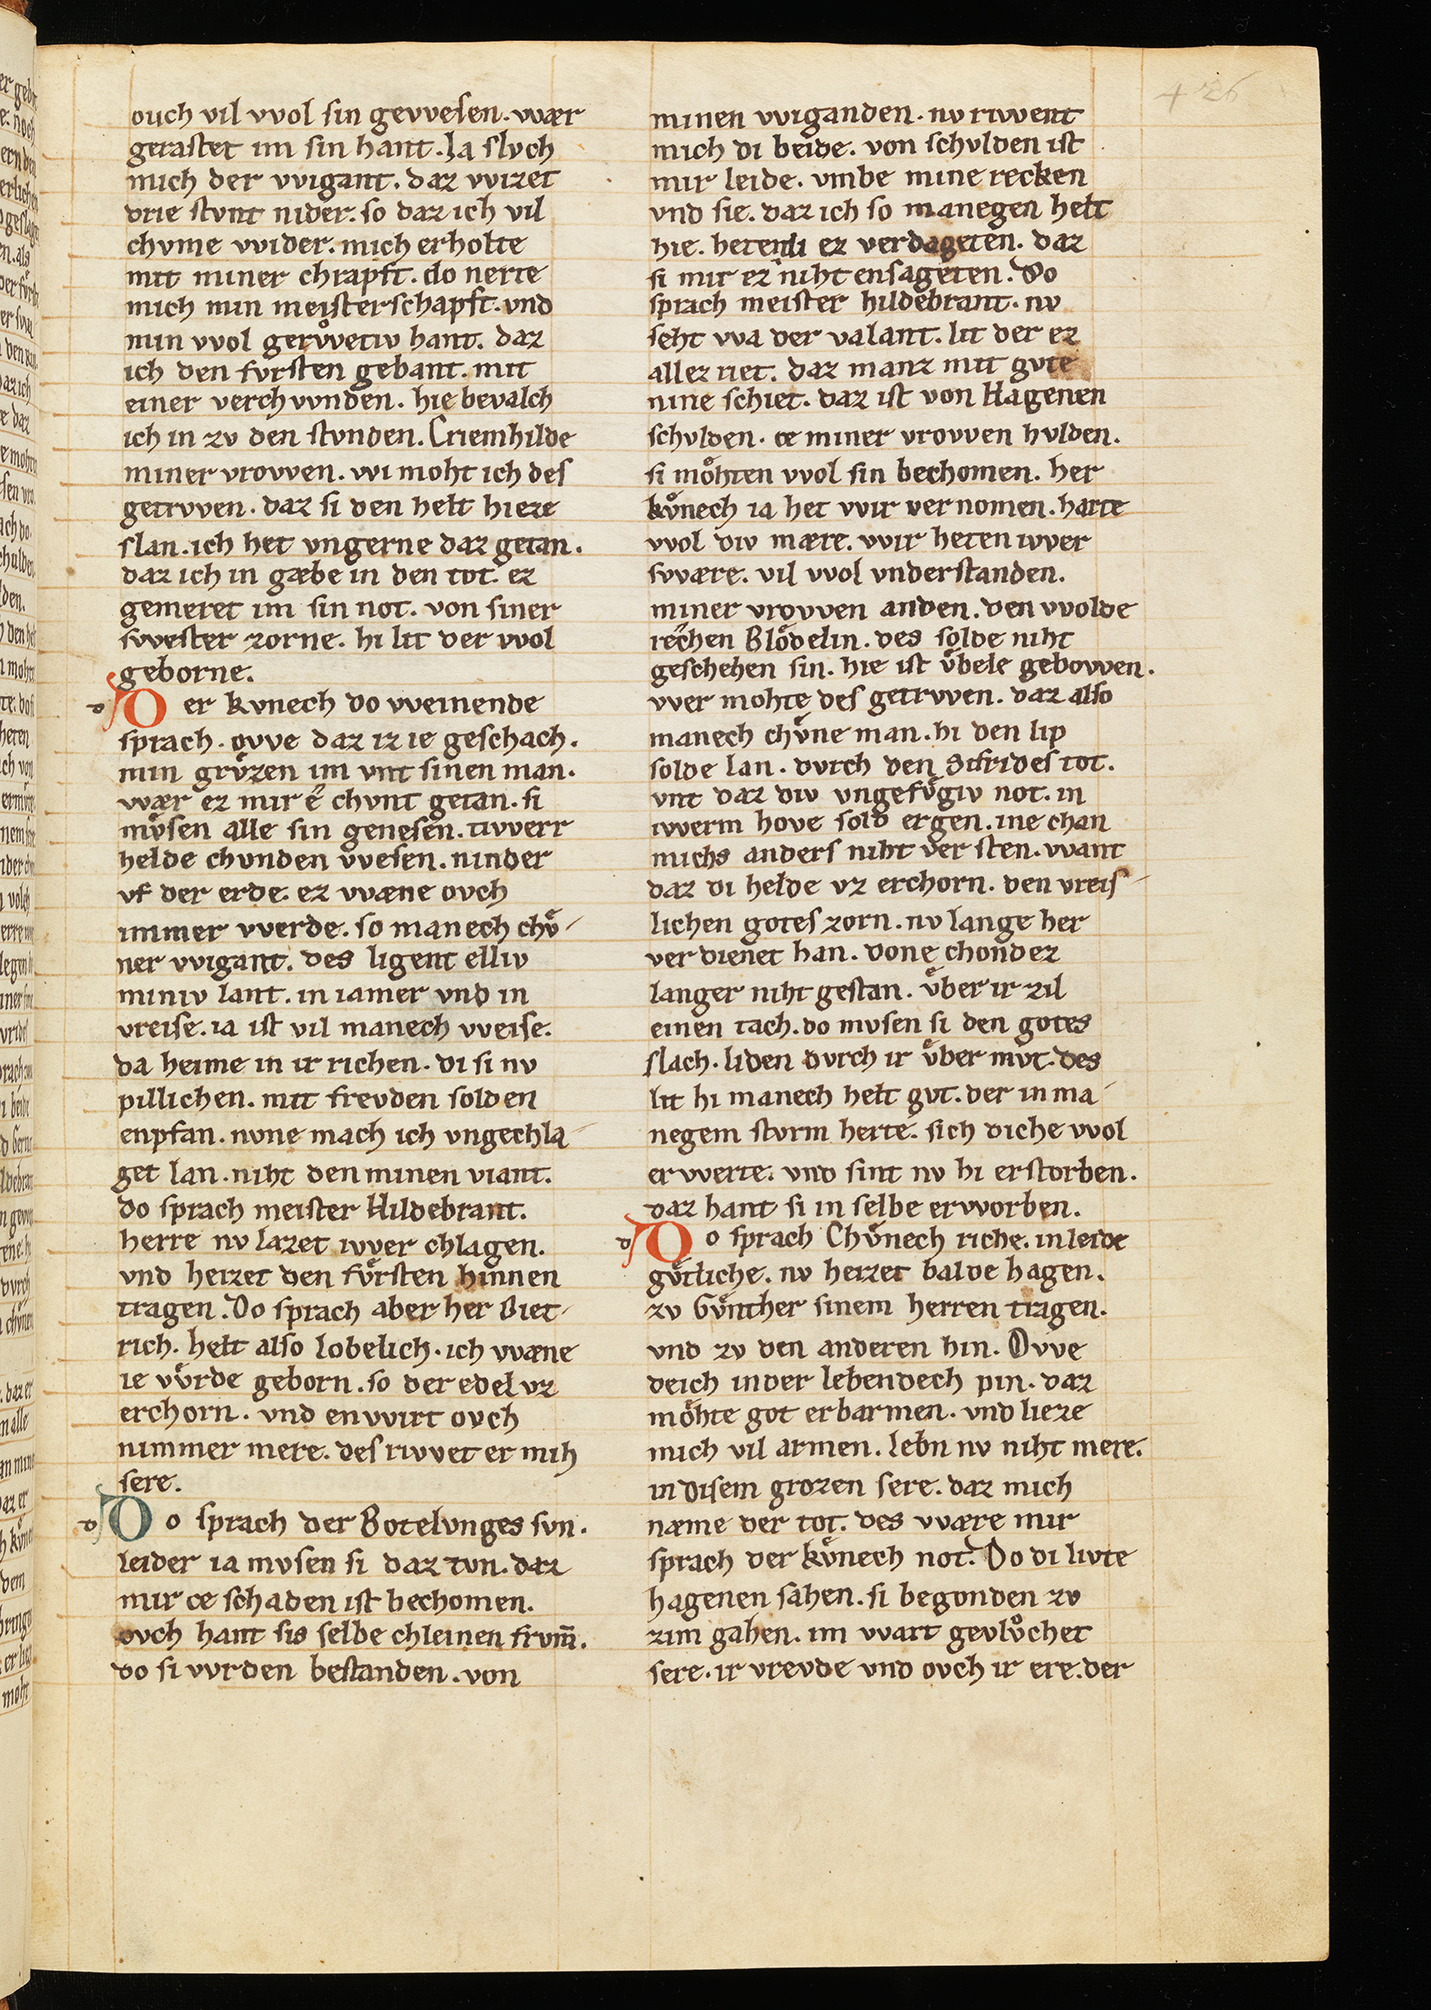 426
ouch vil vvol sin gevvesen. vvær
gerastet im sin hant. Ia slvch
mich der vvigant. daz vvizet
drie stvnt nider. so daz ich vil
chvme vvider. mich erholte
mit miner chrapft. do nerte
mich min meisterschapft. vnd
min vvol gerv̊vetiv hant. daz
ich den fvrsten gebant. mit
einer verch vvnden. hie bevalch
ich in zv den stvnden. Criemhilde
miner vrovven. vvi moht ich des
getrvven. daz si den helt hieze
slan. ich het vngerne daz getan.
daz ich in gæbe in den tot. ez
gemeret im sin not. von siner
svvester zorne. hi lit der vvol
geborne.
Der kvnech do vveinende
sprach. ovve daz iz ie geschach.
min grvͤzen im vnt sinen man.
vvær ez mir e chvnt getan. si
mvͤsen alle sin genesen. tivverr
helde chvnden vvesen. ninder
vf der erde. ez vvæne ovch
immer vverde. so manech chvͤ-
ner vvigant. des ligent elliv
miniv lant. in iamer vnd in
vreise. ia ist vil manech vveise.
da heime in ir richen. di si nv
pillichen. mit frevden solden
enpfan. nvne mach ich vngechla-
get lan. niht den minen viant.
do sprach meister Hildebrant.
herre nv lazet ivver chlagen.
vnd heizet den fvͤrsten hinnen
tragen. Do sprach aber her Diet-
rich. helt also lobelich. ich vvæne
ie vvͤrde geborn. so der edel vz
erchorn. vnd envvirt ovch
nimmer mere. des rivvet er mih
sere.
Do sprach der Botelvnges svn.
leider ia mvsen si daz tvn. daz
mir ce schaden ist bechomen.
ovch hant sis selbe chleinen frvm̄.
do si vvrden bestanden. von
minen vviganden. nv rivvent
mich di beide. von schvlden ist
mir leide. vmbe mine recken
vnd sie. daz ich so manegen helt
hie. heten di ez verdageten. daz
si mir ez niht ensageten. Do
sprach meister hildebrant. nv
seht vva der valant. lit der ez
allez riet. daz manz mit gvte
nine schiet. daz ist von Hagenen
schvlden. ce miner vrovven hvlden.
si moͤhten vvol sin bechomen. her
kvͤnech ia het vvir vernomen. harte
vvol div mære. vvir heten ivver
svvære. vil vvol vnderstanden.
miner vrovven anden. den vvolde
rechen Bloͤdelin. des solde niht
geschehen sin. hie ist vͤbele gebovven.
vver mohte des getrvven. daz also
manech chvͤne man. hi den lip
solde lan. dvrch den Sifrides tot.
vnt daz div vngefvͤgiv not. in
ivverm hove sold ergen. ine chan
michs anders niht versten. vvant
daz di helde vz erchorn. den vreis-
lichen gotes zorn. nv lange her
verdienet han. done chondez
langer niht gestan. vͤber ir zil
einen tach. do mvsen si den gotes
slach. liden dvrch ir vͤber mvt. des
lit hi manech helt gvt. der in ma-
negem stvrm herte. sich diche vvol
ervverte. vnd sint nv hi erstorben.
daz hant si in selbe ervvorben.
Do sprach Chvͤnech riche. in leide
gvͤtliche. nv heizet balde hagen.
zv Gvͤnther sinem herren tragen.
vnd zv den anderen hin. Ovve
deich inder lebendech pin. daz
moͤhte got erbarmen. vnd lieze
mich vil armen. lebn nv niht mere.
in disem grozen sere. daz mich
næme der tot. des vvære mir
sprach der kvͤnech not. Do di livte
hagenen sahen. si begonden zv
zim gahen. im vvart gevlvͦchet
sere. ir vrevde vnd ovch ir ere. der